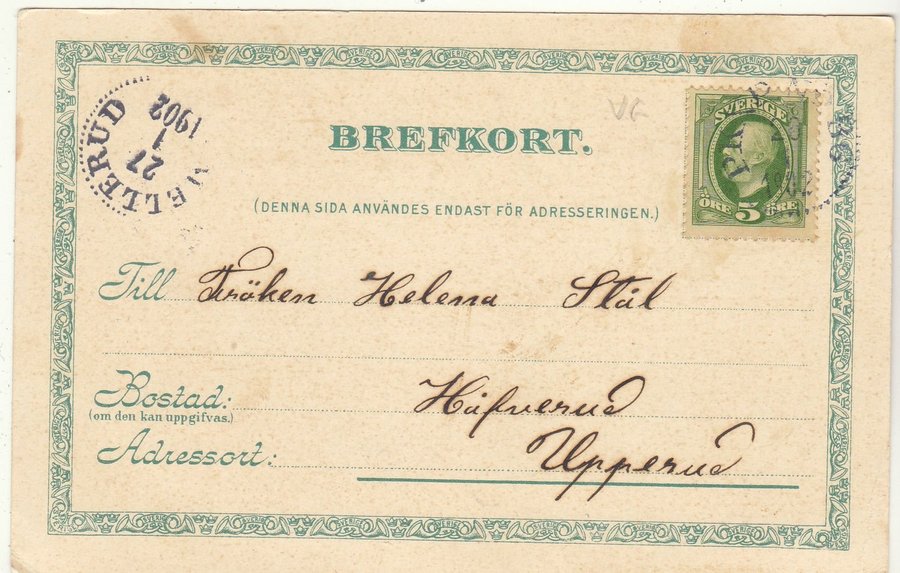 MELLERUD
27
1
1902
VG
SVERIGE
PK
1902
ÖRE 5 ÖRE
BREFKORT.
(DENNA SIDA ANVÄNDES ENDAST FÖR ADRESSERINGEN.)
Till Fröken Helena Stål
Bostad: Håfverud
(om den kan uppgifvas.)
Adressort: Upperud